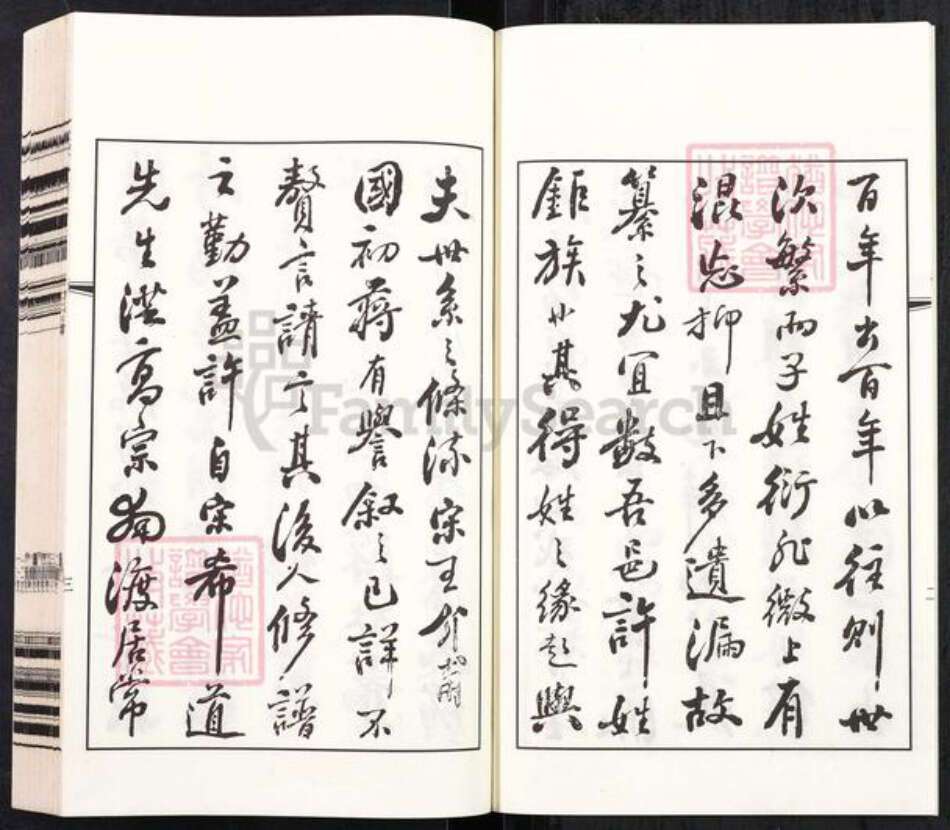 百年出百年以往則世
次繁而子姓衍非微上有
混忘抑且下多遺漏故
纂之尤宜數吾邑許姓
鉅族也其得姓之緣起與
夫世系之條流宋王
國初蔣有譽叙之已詳不
贅言請言其後人修譜
之勤蓋許自宋希道
先生從高宗南渡居常
三
二
FamilySearch